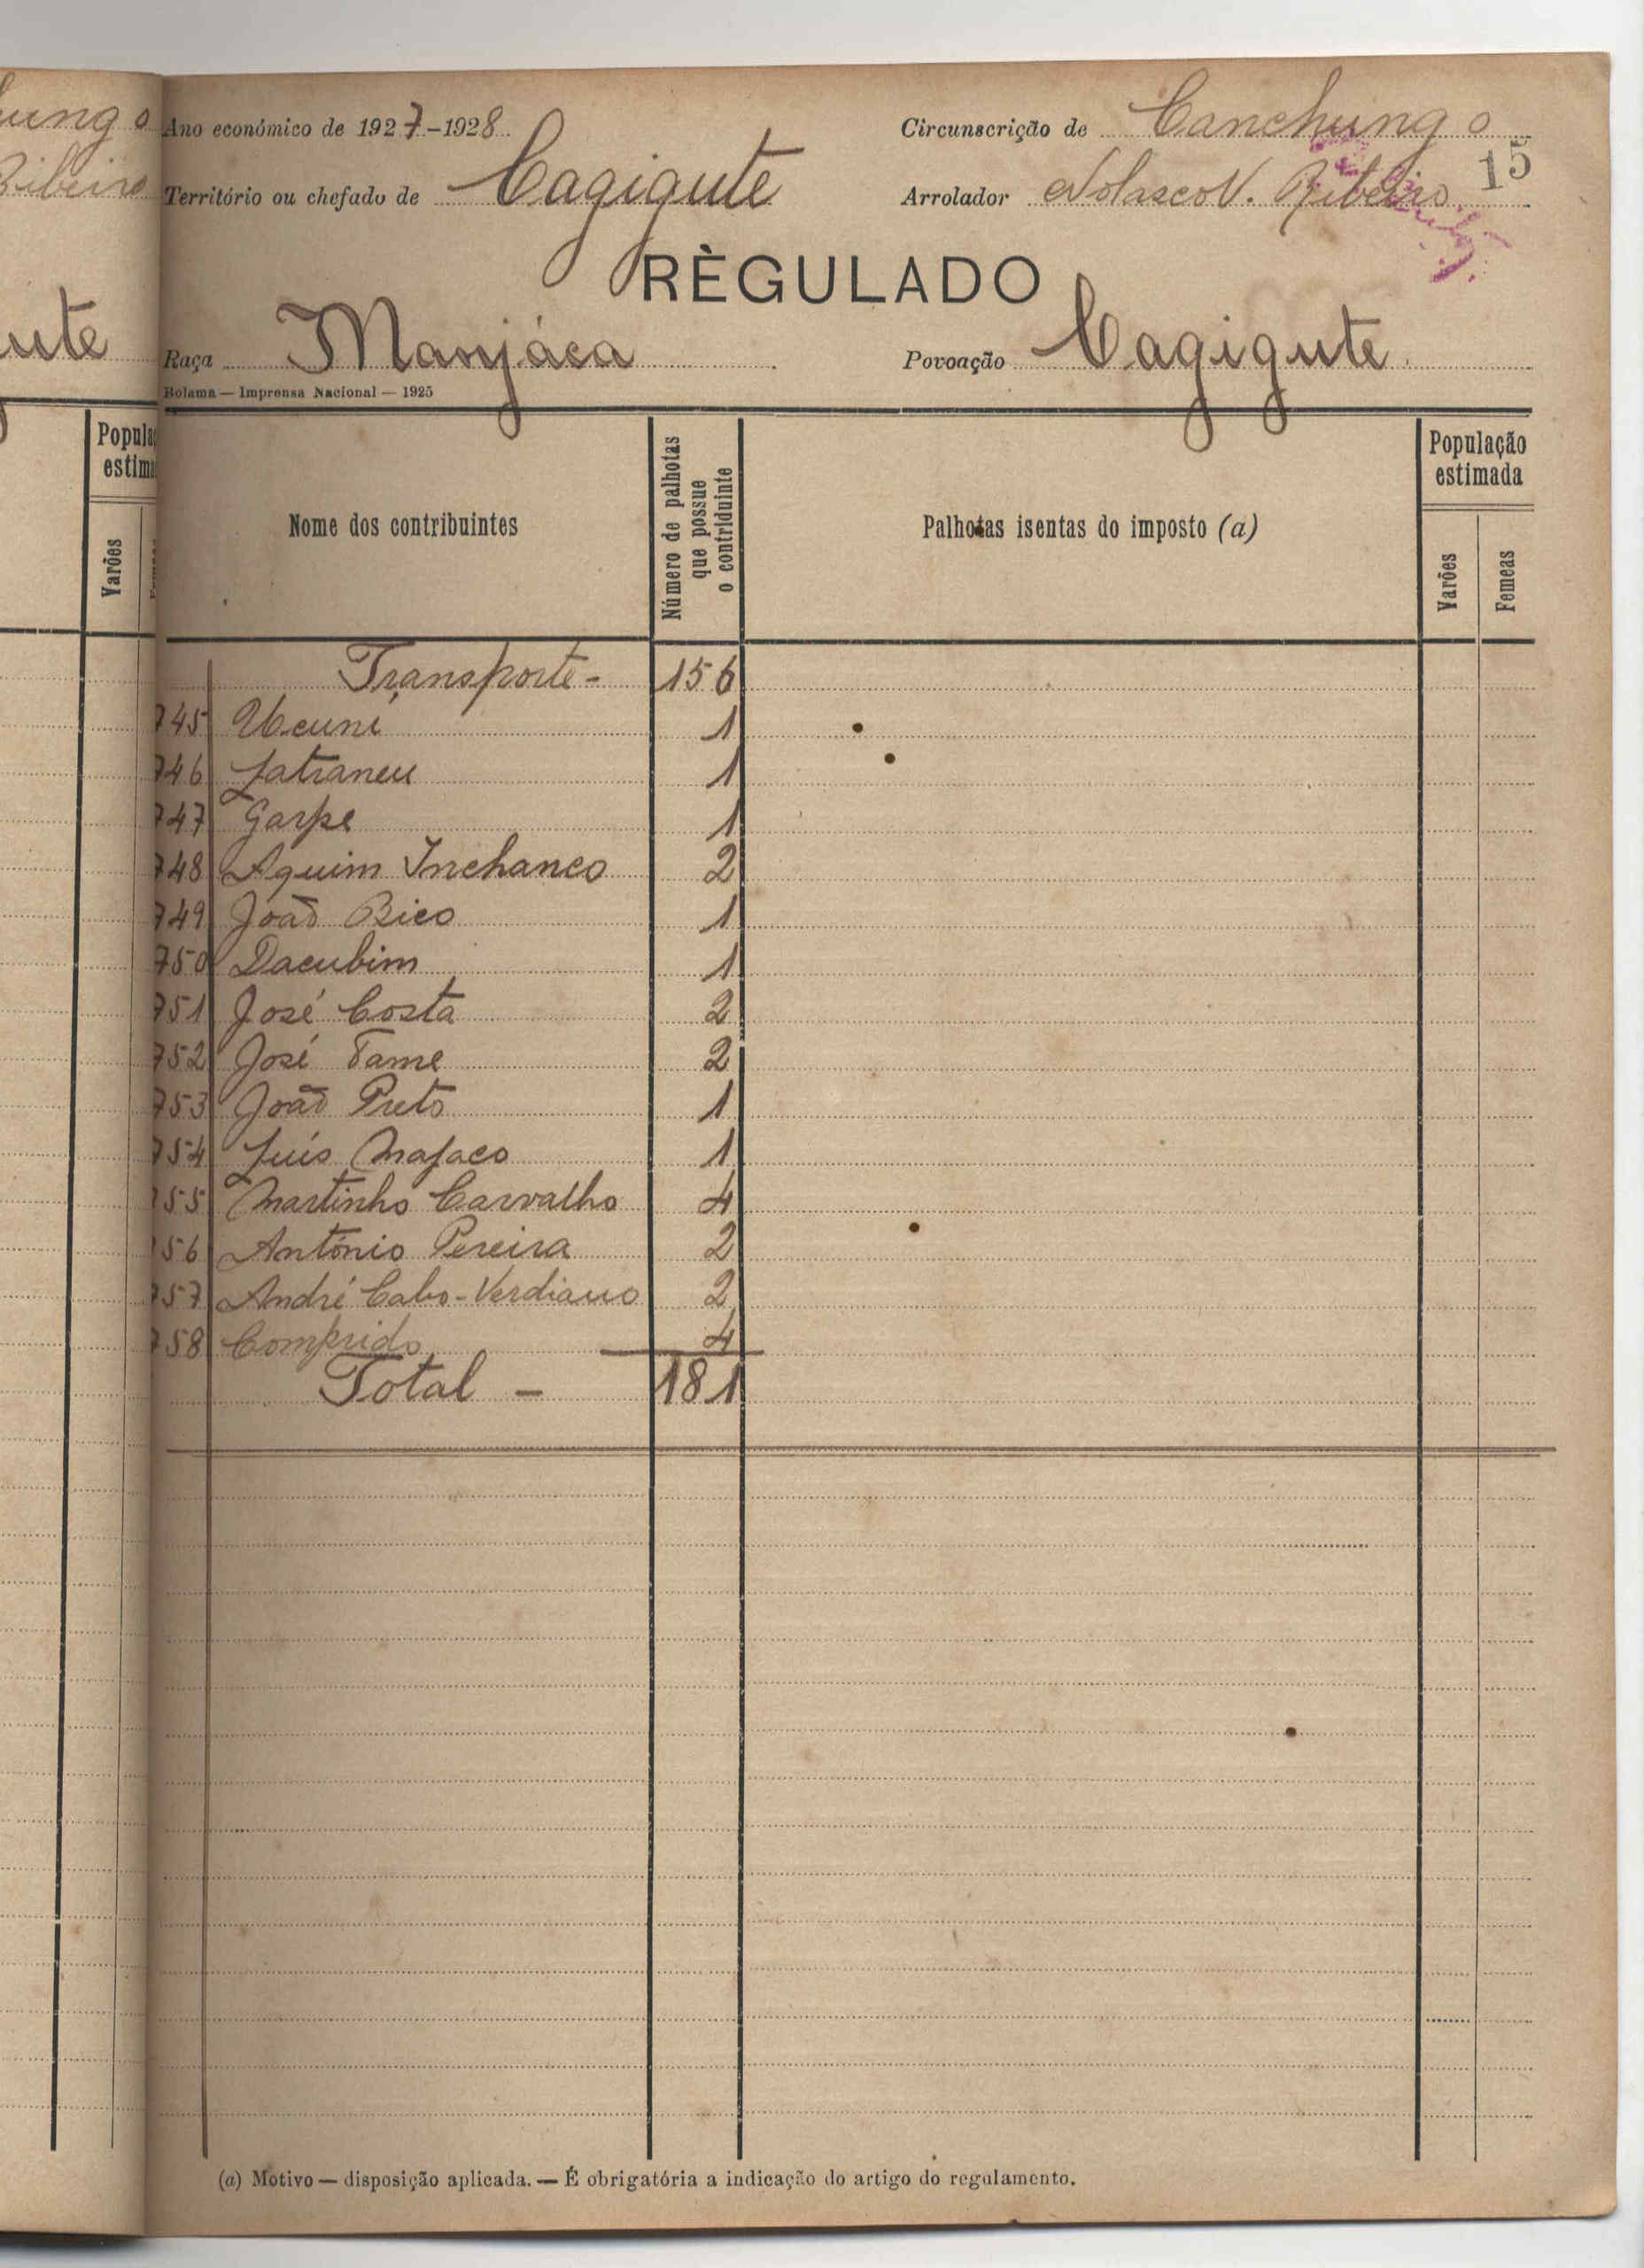 ungo
Ribeiro
ute
Popula
estima
Varões
Ano económico de 1927-1928
Circunscrição de Canchungo
15
Território ou chefado de Cagigute
Arrolador Nolasco V. Ribeiro
RÈGULADO
Raça Manjáca
Povoação Cagigute
Bolama — Imprensa Nacional — 1925
Nome dos contribuintes
Número de palhotas
que possue
o contriduinte
Palhotas isentas do imposto (a)
População
estimada
Varões
Femeas
Transporte - 156
745 Ucuni 1
746 Latraneu 1
747 Garpe 1
748 Aquim Inchanco 2
749 João Bico 1
750 Dacubim 1
751 José Costa 2
752 José Tame 2
753 João Preto 1
754 Luís Mafaco 1
755 Martinho Carvalho 4
756 António Pereira 2
757 André Cabo-Verdiano 2
758 Comprido 4
Total - 181
(a) Motivo — disposição aplicada. — É obrigatória a indicação do artigo do regulamento.